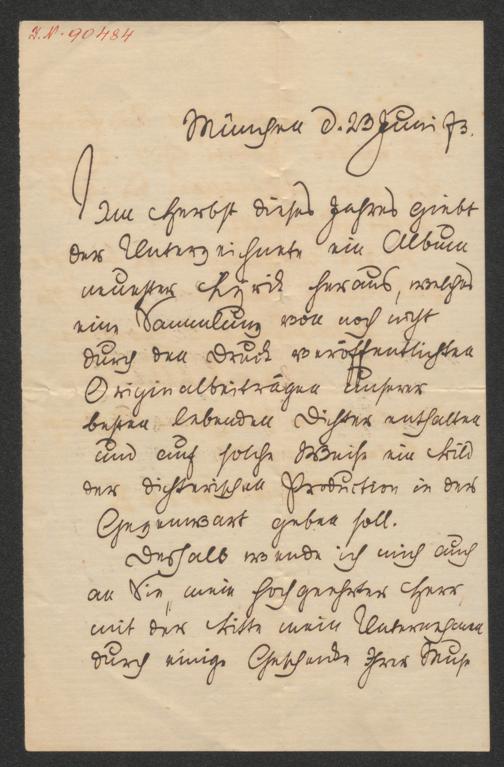 I.N. 90484
München d. 23 Juni 73.
Im Herbst dieses Jahres giebt
der Unterzeichnete ein Album
neuester Lyrik heraus, welches
eine Sammlung von noch nicht
durch den Druck veröffentlichten
Originalbeiträgen unserer
besten lebenden Dichter enthalten
und auf solche Weise ein Bild
der dichterischen Production in der
Gegenwart geben soll.
Deshalb wende ich mich auch
an Sie, mein hochgeehrter Herr,
mit der Bitte mein Unternehmen
durch einige Geschenke Ihrer Muse